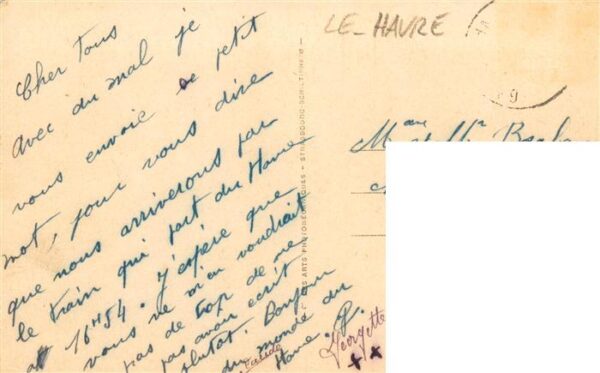 LE_HAVRE
Cher Tous
avec du mal je
vous envoie ce petit
mot, pour vous dire
que nous arriverons par
le train qui part du Havre
at 16H54. J'espère que
vous ne m'en voudrait
pas de trop de ne
pas avoir ecrit
plutat. Bonjour
du monde du
Havre. P.
Georgette
Claude
Mme et Mr
ARTS PHOTOMÉCANIQUES - STRASBOURG-SCHILTIGHEIM